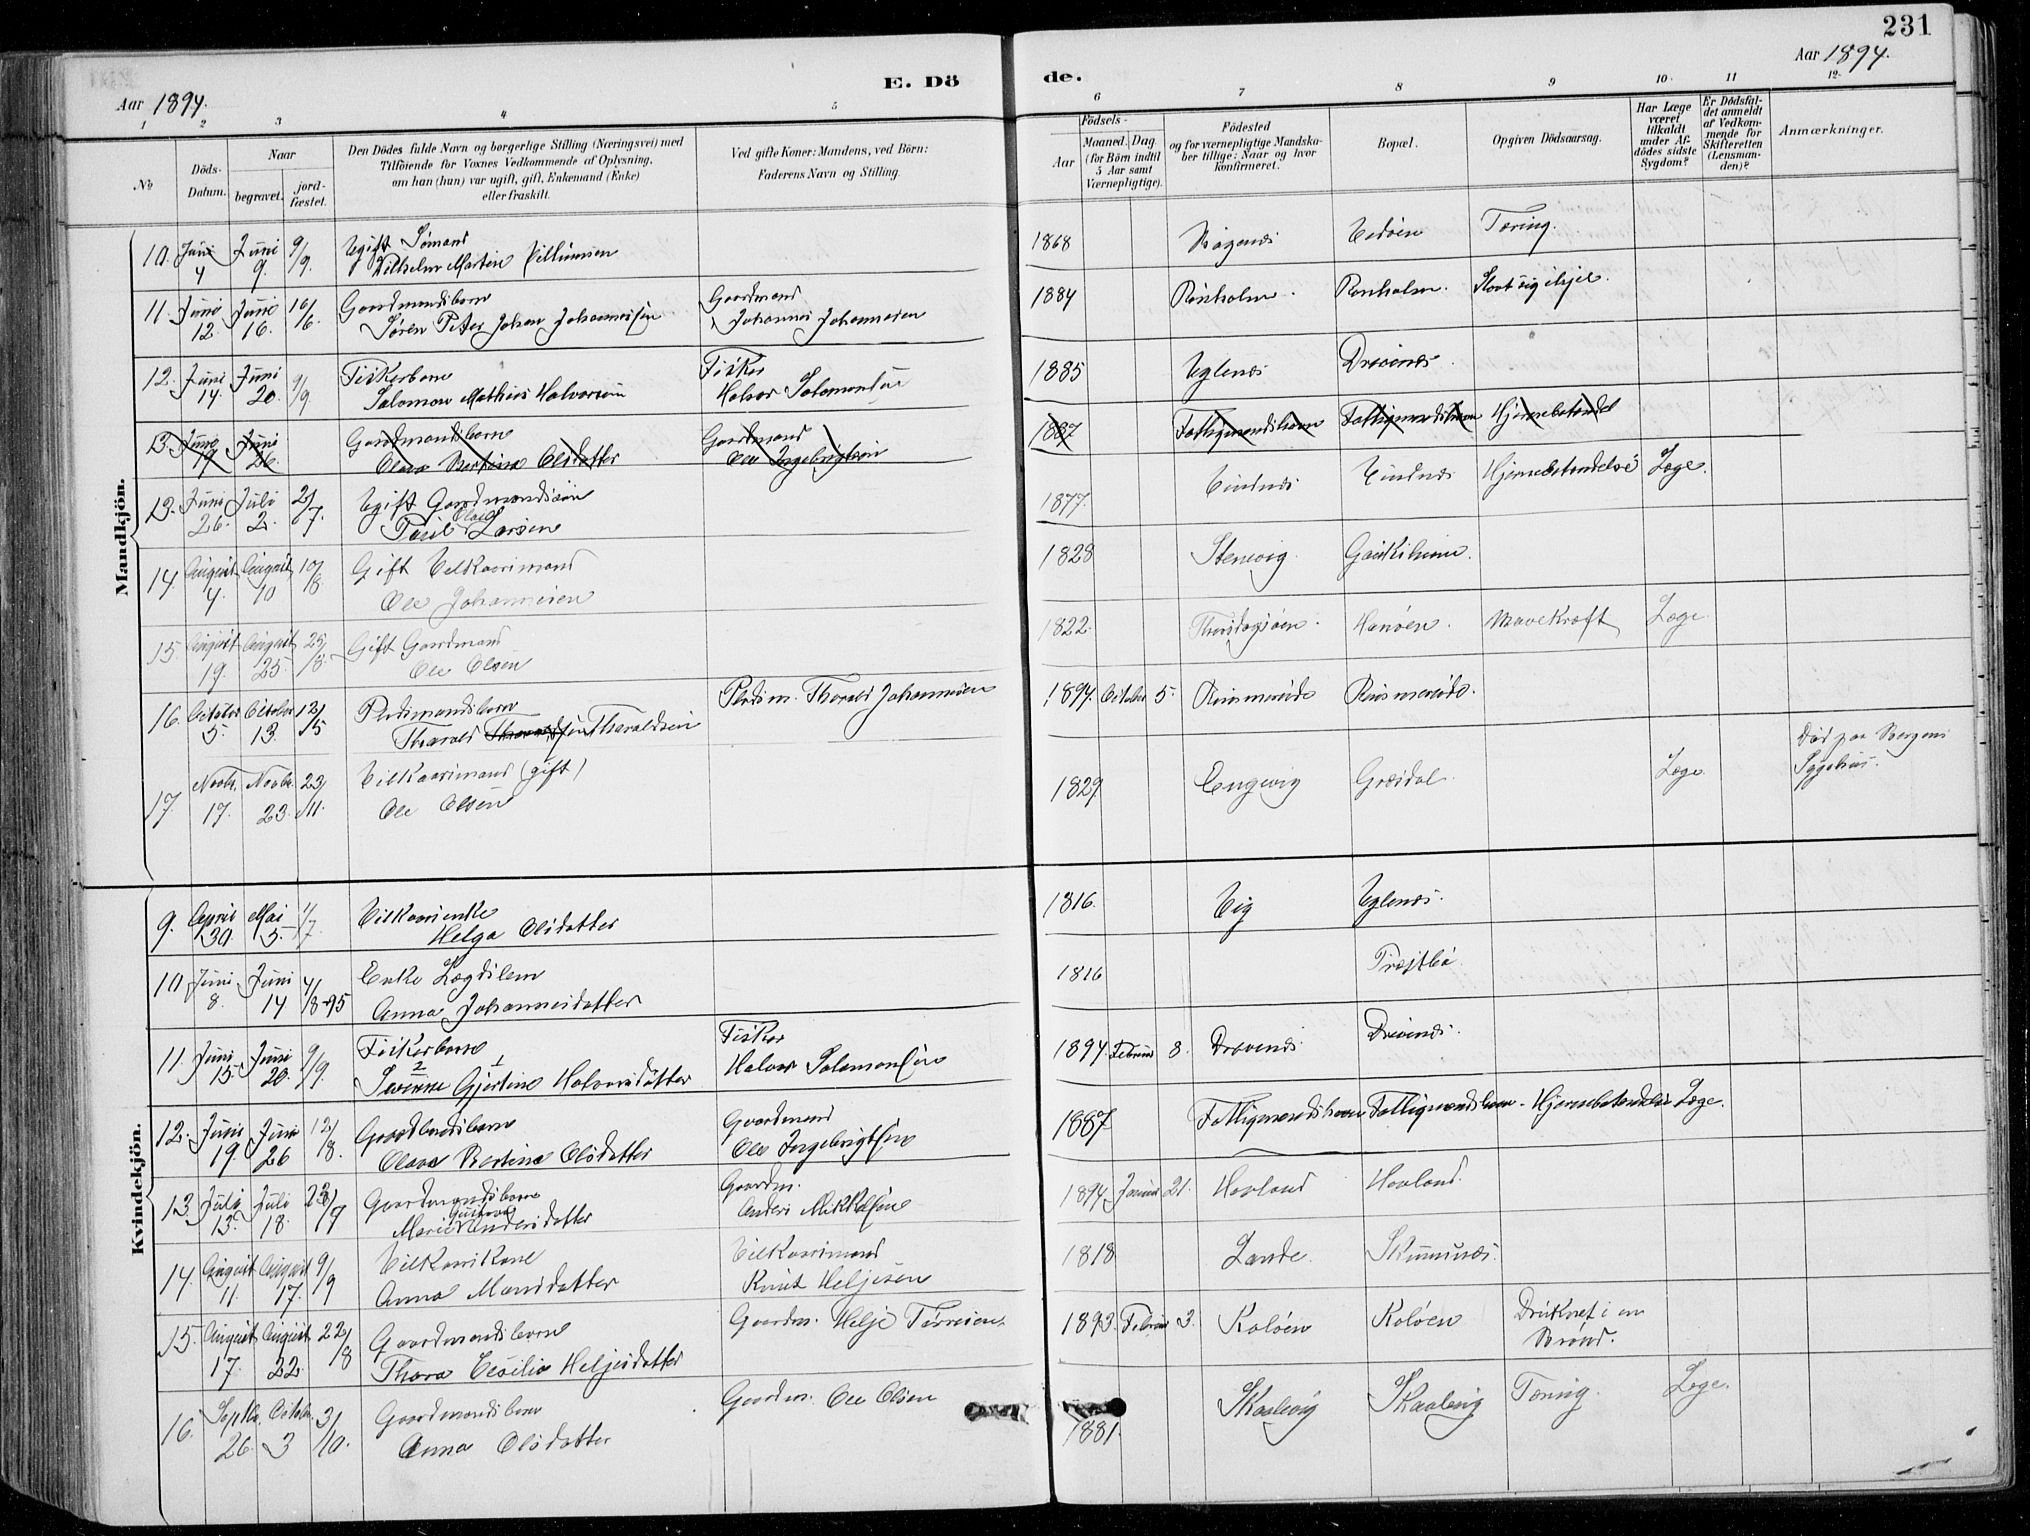 231
Aar 1894.
E. Dö
de.
Aar 1894.
1 2 3 4 5 6 7 8 9 10. 11 12.
No
Döds-Datum.
Naar
begravet.
jord-fæstet.
Den Dödes fulde Navn og borgerlige Stilling (Næringsvei) med
Tilföiende for Voxnes Vedkommende af Oplysning,
om han (hun) var ugift, gift, Enkemand (Enke)
eller fraskilt.
Ved gifte Koner: Mandens, ved Börn:
Faderens Navn og Stilling.
Födsels-
Aar
Maaned. Dag
(for Börn indtil
5 Aar samt
Værnepligtige).
Födested
og for værnepligtige Mandska-
ber tillige: Naar og hvor
konfirmeret.
Bopæl.
Opgiven Dödsaarsag.
Har Læge
været
tilkaldt
under Af-
dödes sidste
Sygdom?
Er Dödsfal-
det anmeldt
af Vedkom-
mende for
Skifteretten
(Lensman-
den)?
Anmærkninger.
Mandkjön.
10. Juni 4 Juni 9. 9/9. Ugift Sømand 1868 Tæring.
Vilhelm Martin
11. Juni 12 Juni 16. 16/6. Gaardmandsbarn Gaardmand 1884 Rönholm. Rönholm. Slaat sig ihjel.
Søren Peter Johan Johannesſen Johannes Johannesen
12. Juni 14. Juni 20. 9/9. Fiskerbarn Fisker 1885 Uglenes
Salomon Mathias Halvorsen Halvor Salomonſen
13. Juni 19 Juni 26. Gaardmandsbarn Gaardmand 1887 Fattigmandshavn Fattigmandshavn Hjernebetændel
Olava Bertina Olsdatter Ole Ingebrigtsen
13. Juni 26. Juli 2. 2/7. Ugift Gaardmandssøn 1877. Hjernebetændelse Læge.
Paul Olai Larsen
14. August 4. August 10 10/8 Gift Vilkaarsmand 1828 Stenvig.
Ole Johannesen
15. August 19. August 25. 25/8. Gift Gaardmand 1822. Mavekræft Læge
Ole Olsen
16. October 5. October 13. Pladsmandsbarn Pladsm. Thorald Johannesen 1894. October 5.
Tharald Tharaldsen
17. Novbr. 17. Novbr. 23. 23/11. Vilkaarsmand (gift) 1829 Engevig Læge. Död paa Bergens
Ole Olsen Sygehus.
Kvindekjön.
9. April 30. Mai 5. Vilkaarsenke 1816. Vig Uglenes.
Helga Olsdatter
10 Juni 8. Juni 14 4/8-95 Enke Lægdslem 1816
Anna Johannesdatter
11. Juni 15. Juni 20. 9/9. Fiskerbarn Fisker 1894. Februar 8.
2 1
Severine Gjertine Halvorsdatter Halvor Salomonſen
12. Juni 19. Juni 26 12/8. Gaardbrugsbarn Gaardmand 1887 Fattigmandshavn Fattigmandshavn. Hjernebetændelse Læge.
Olava Bertina Olsdatter Ole Ingebrigtſen
13. Juli 13. Juli 18. Gaardmandsbarn Gaardm. 1894. Januar 21. Havland Havland.
Marie Gustava Andersdatter Anders Mikkelſen
14. August 11. August 17. 9/9 Vilkaarskone Vilkaarsmand 1818 Lande.
Anna Monsdatter Knut Heljesen
15. August 17. August 22. 22/8 Gaardmandsbarn Gaardm. Helje 1893. Februar 3. Koløen Koløen Druknet i en
Thora Cesilia Heljesdatter Brønd.
16. Septbr. 26. Octobr. 3 3/10. Gaardmandsbarn Gaardm. Ole Olsen 1881. Skaalevig Skaalevig Tæring. Læge.
Anna Olsdatter